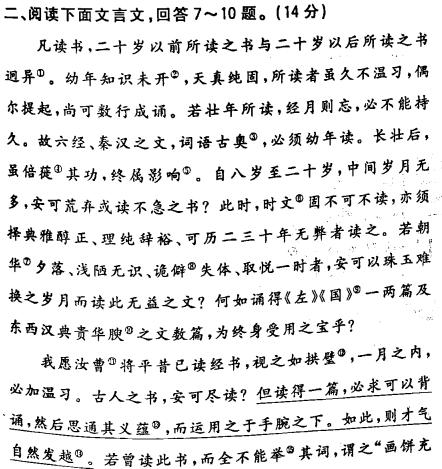 二、阅读下面文言文,回答7～10题。(14分)
凡读书,二十岁以前所读之书与二十岁以后所读之书
迥异①。幼年知识未开②,天真纯固,所读者虽久不温习,偶
尔提起,尚可数行成诵。若壮年所读,经月则忘,必不能持
久。故六经、秦汉之文,词语古奥③,必须幼年读。长壮后,
虽倍蓰④其功,终属影响⑤。自八岁至二十岁,中间岁月无
多,安可荒弃或读不急之书?此时,时文⑥固不可不读,亦须
择典雅醇正、理纯辞裕、可历二三十年无弊者读之。若朝
华⑦夕落、浅陋无识、诡僻⑧失体、取悦一时者,安可以珠玉难
换之岁月而读此无益之文?何如诵得《左》《国》⑨一两篇及
东西汉典贵华腴⑩之文数篇,为终身受用之宝乎?
我愿汝曹⑪将平昔已读经书,视之如拱璧⑫,一月之内,
必加温习。古人之书,安可尽读?但读得一篇,必求可以背
诵,然后思通其义蕴⑬,而运用之于手腕之下。如此,则才气
自然发越⑭。若曾读此书,而全不能举⑮其词,谓之“画饼充